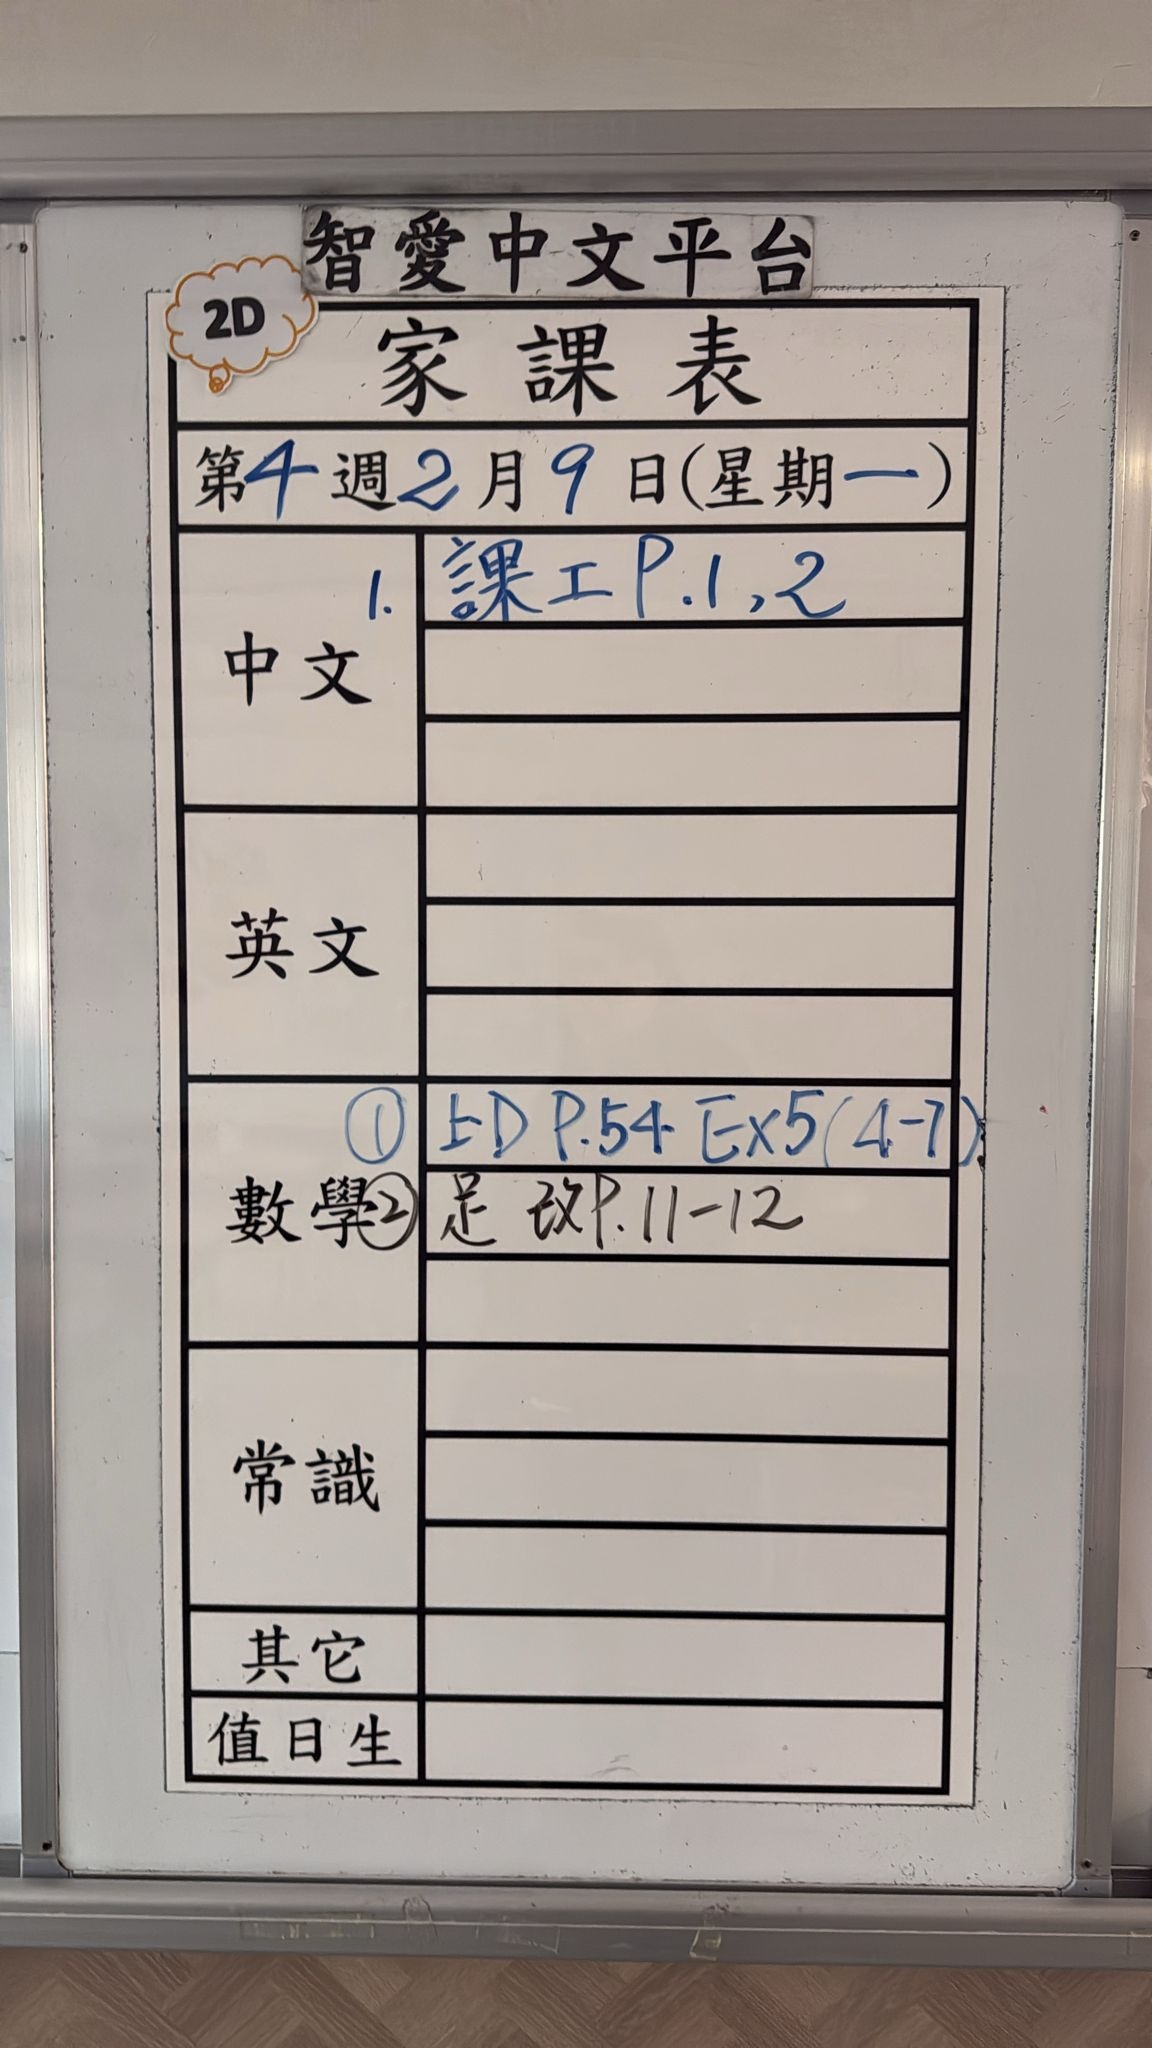 智愛中文平台
2D
家課表
第4週2月9日(星期一)
中文
1. 課工 P.1,2
英文
數學
① 上D P.54 Ex5(4-7)
② 足 改P.11-12
常識
其它
值日生